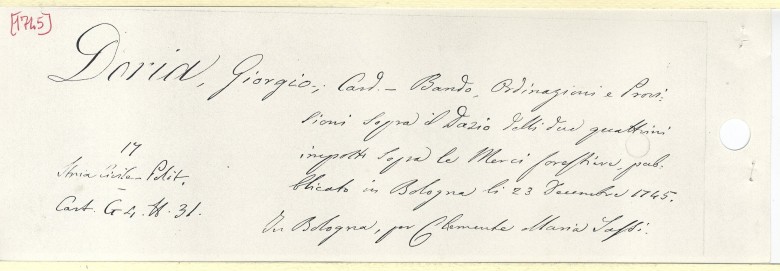 [1745]
Doria, Giorgio.; Card. – Bando, Ordinazioni e Provi-
sioni sopra il Dazio delli due quattrini
imposti sopra le Merci forestiere pub-
blicato in Bologna li 23 Decembre 1745.
In Bologna, per Clemente Maria Sassi.
17
Storia Civile-Polit.
Cart. G 4. N. 31.